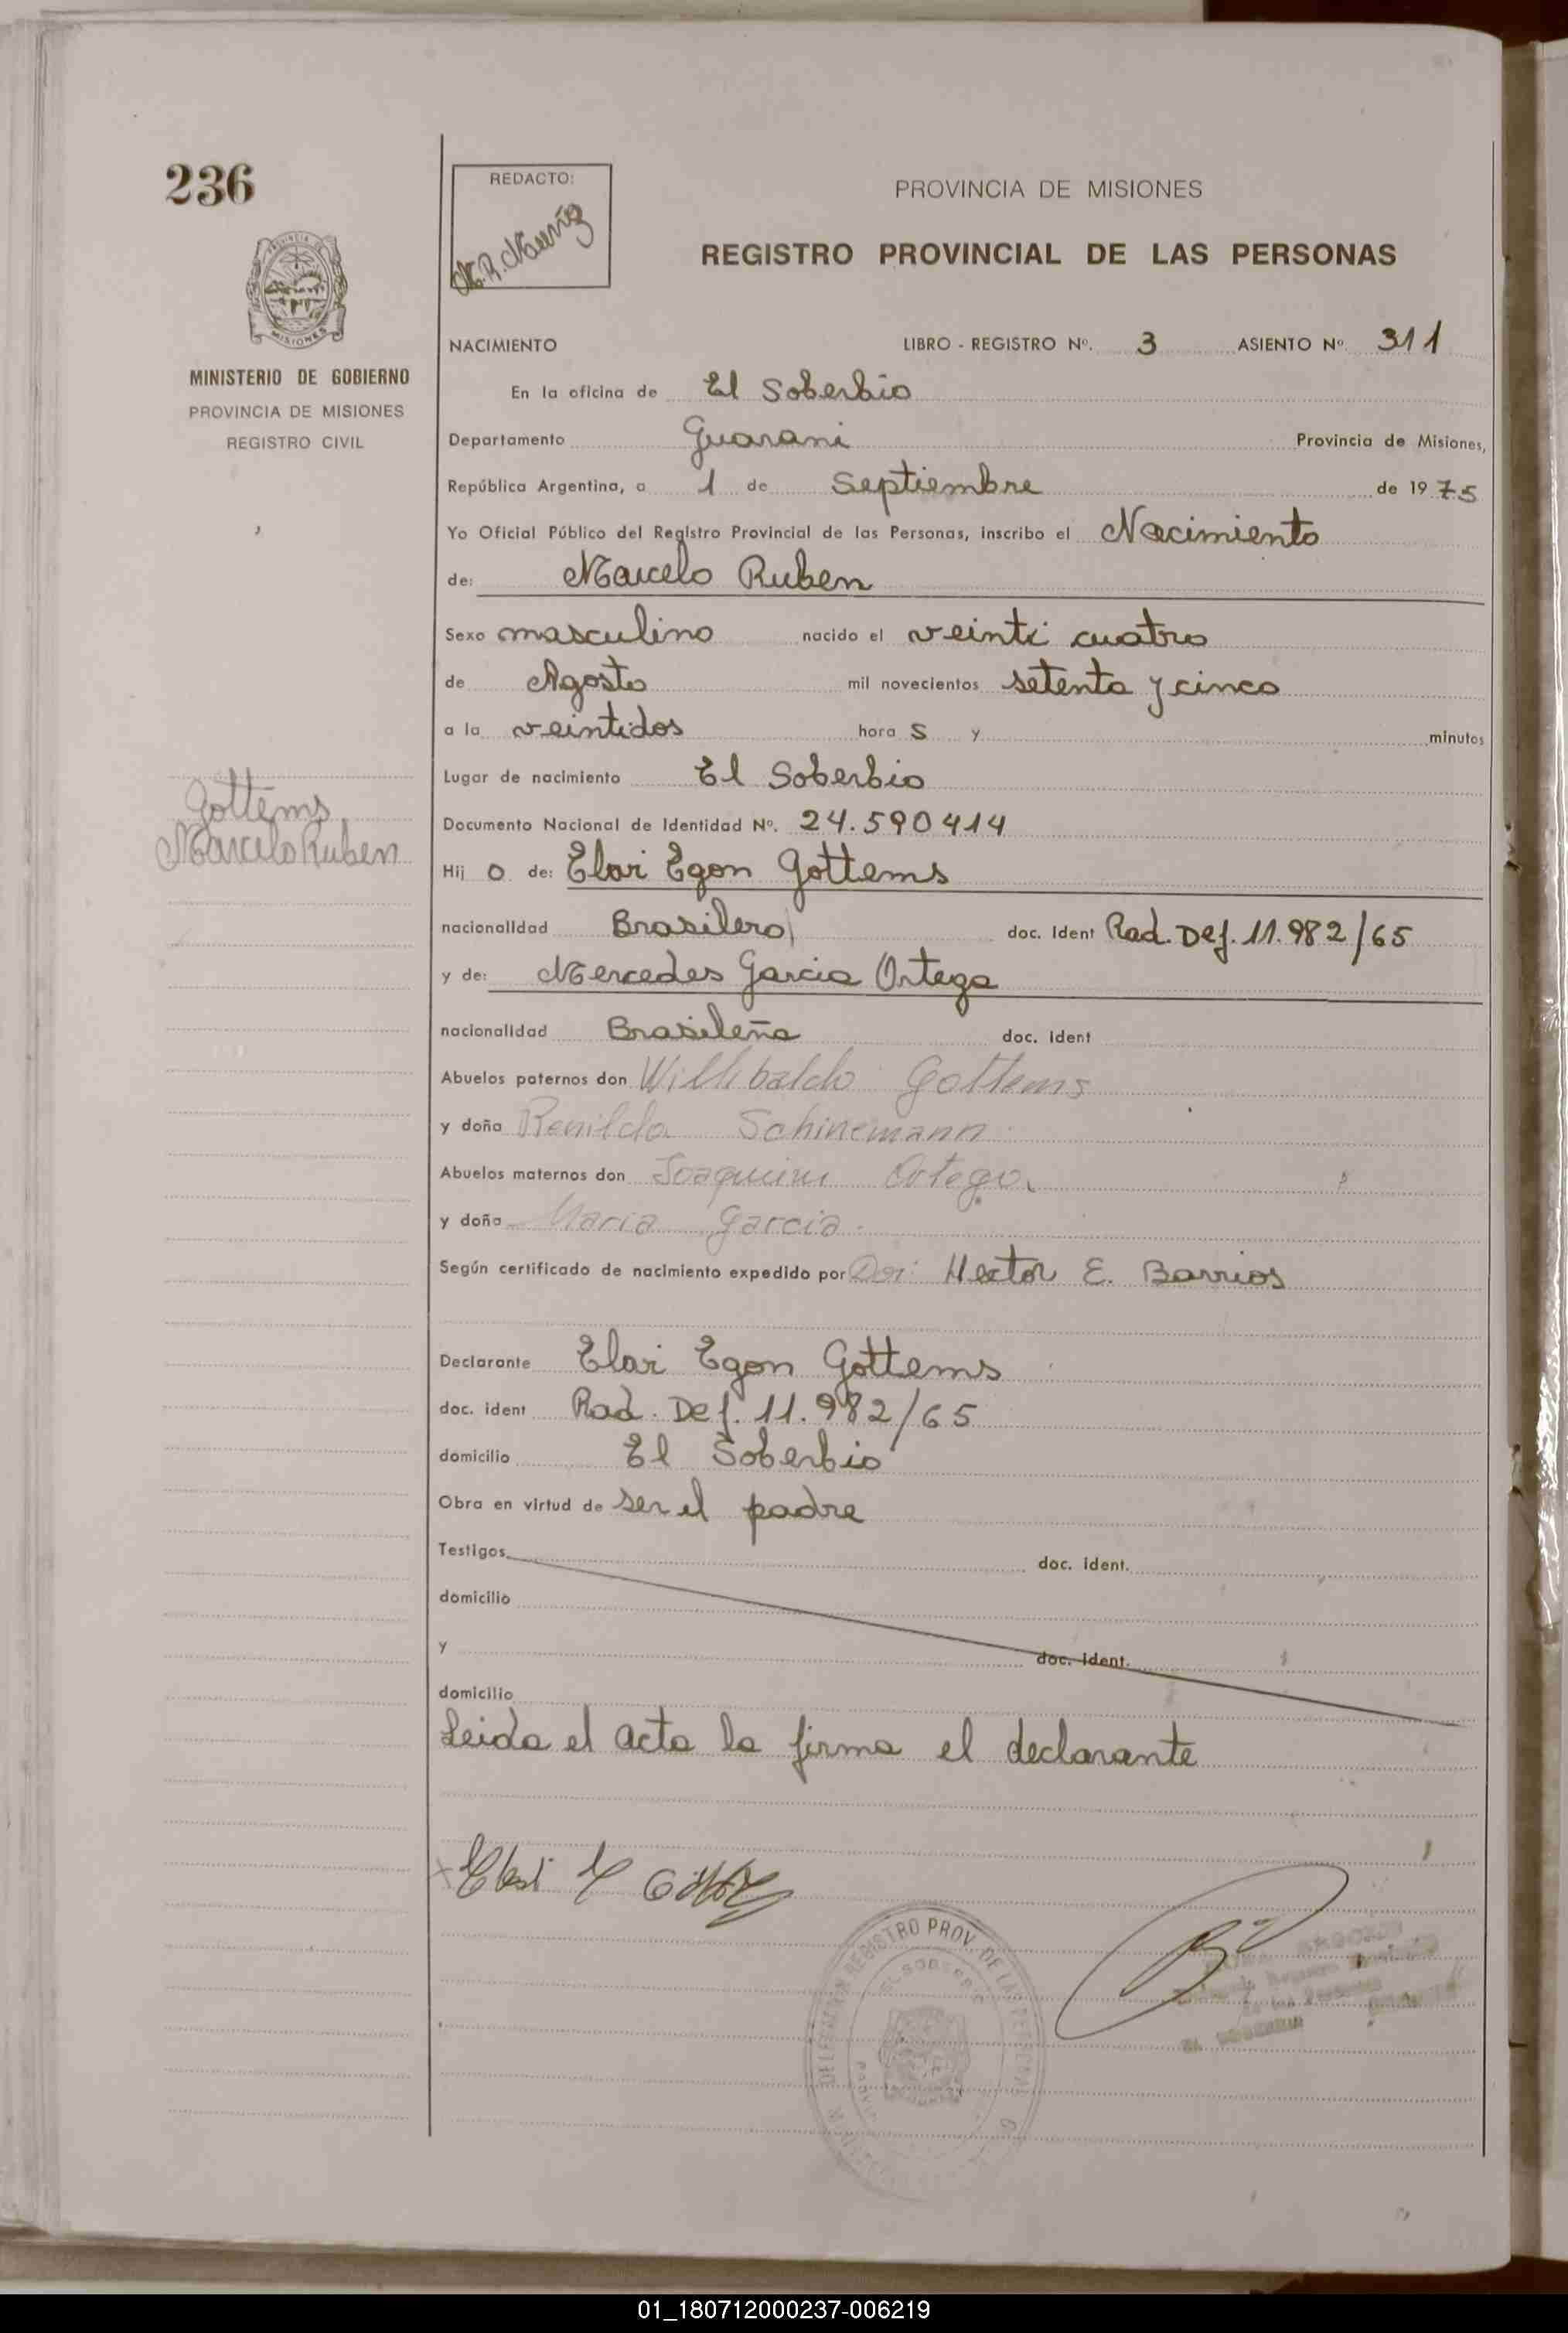 236
REDACTO:
PROVINCIA DE MISIONES
REGISTRO PROVINCIAL DE LAS PERSONAS
MISIONES
MINISTERIO DE GOBIERNO
PROVINCIA DE MISIONES
REGISTRO CIVIL
NACIMIENTO LIBRO - REGISTRO Nº. 3 ASIENTO Nº. 311
En la oficina de El Soberbio
Departamento Guarani Provincia de Misiones,
República Argentina, a 1 de Septiembre de 1975
Yo Oficial Público del Registro Provincial de las Personas, inscribo el Nacimiento
de: Marcelo Ruben
Sexo masculino nacido el veinti cuatro
de Agosto mil novecientos setenta y cinco
a la veintidos hora s y minutos
Lugar de nacimiento El Soberbio
Gottems
Marcelo Ruben
Documento Nacional de Identidad Nº. 24.590414
Hij o de: Elari Egon Gottems
nacionalidad Brasilero doc. Ident Rad. Def. 11.982/65
y de: Mercedes Garcia Ortega
nacionalidad Brasileña doc. Ident
Abuelos paternos don Willibaldo Gottems
y doña Renilda Schinemann
Abuelos maternos don Joaquim Ortega
y doña Maria Garcia.
Según certificado de nacimiento expedido por Dor: Hector E. Barrios
Declarante Elari Egon Gottems
doc. ident Rad. Def. 11.982/65
domicilio El Soberbio
Obra en virtud de ser el padre
Testigos doc. ident.
domicilio
y doc. ident.
domicilio
Leida el acta la firma el declarante
REGISTRO PROV. DE LAS PERSONAS
EL SOBERBIO
01_180712000237-006219